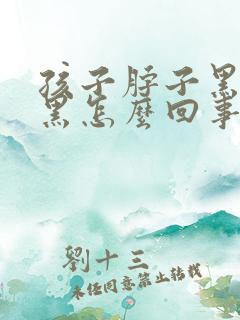 孩子脖子黑
黑怎麼回事
劉十三
未經同意禁止轉載